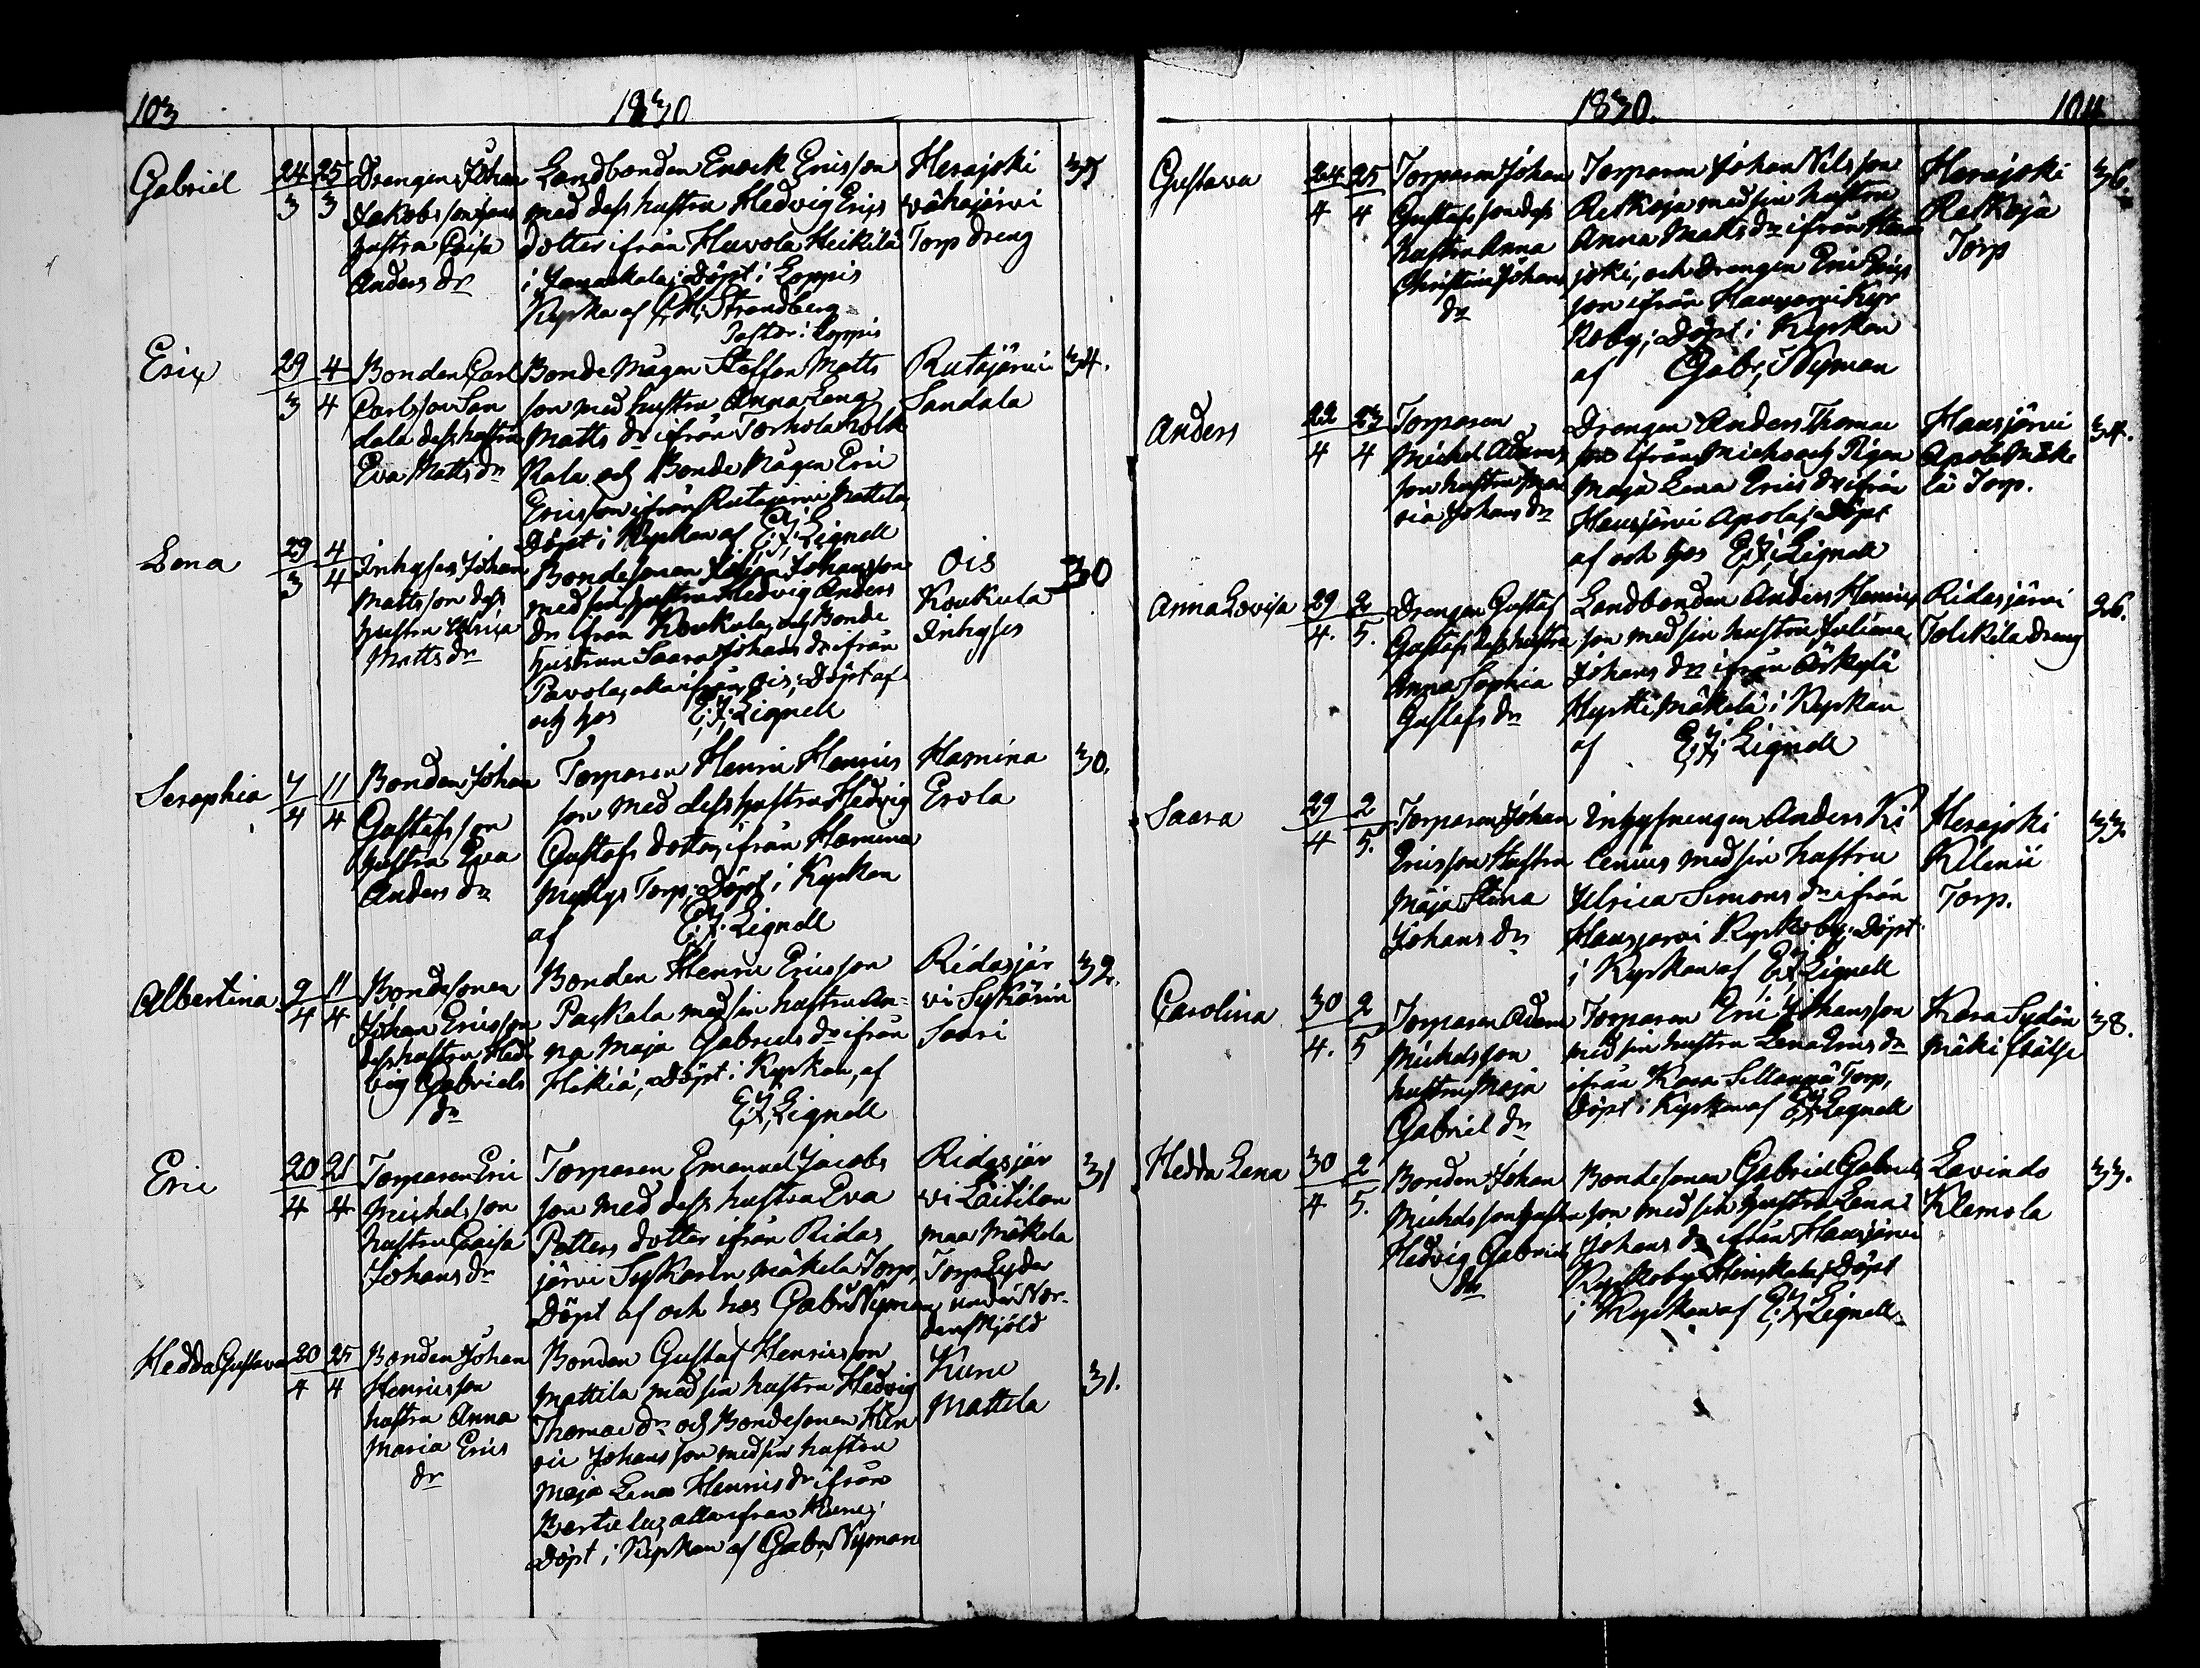 103
1830
Gabriel
24/3
25/3
Drengen Johan
Jakobsson hans
hustru Caisa
Anders dr
Landbonden Enock Ericsson
med dess hustru Hedvig Erics
dotter ifrån Huvola Heikilä
i Janakala; Döpt i Loppis
Kyrka af C, H, Strandberg
Pastor i Loppis
Herajoki
wähäjärvi
Torp dreng
Eric
29/3
4/4
Bonden Carl
Carlsson San
dala dess hustru
Eva Matts dr
Bonde Mågen Steffan Matts
son med hustru Anna Lena
Matts dr ifrån Torhola
och Bonde Mågen Eric
Ericsson ifrån Rutajärvi Mattila
Döpt i Kyrkan af E, J, Lignell
Rutajärvi
Sandala
34.
Lena
29/3
4/4
Inhyses Johan
Mattsson dess
hustru Ulrica
Matts dr
Bondesonen Johan Johansson
med sin hustru Hedvig Anders
dr ifrån Koukula, och Bonde
hustrun Saara Johans dr ifrån
Pavola, alla ifrån Ois; Döpt af
och hos E, J, Lignell
Ois
Koukula
Inhyses
30
Seraphia
7/4
11/4
Bonden Johan
Gustafsson
hustru Eva
Anders dr
Torparen Henric Henrics
son med dess hustru Hedvig
Gustafs dotter, ifrån Hamina
Myllys Torp; Döpt i Kyrkan
af E, J, Lignell
Hamina
Erola
30.
Albertina
9/4
11/4
Bondesonen
Johan Ericsson
dess hustru Hed
vig Gabriels
dr
Bonden Henric Ericsson
Packala med sin hustru An-
na Maja Gabriels dr ifrån
Hikiä, Döpt i Kyrkan, af
E, J, Lignell
Ridasjär
vi Sykärin
Saari
32.
Eric
20/4
21/4
Torparen Eric
Michelsson
hustru Caisa
Johans dr
Torparen Emanuel Jacobs
son med dess hustru Eva
Petters dotter ifrån Ridas
järvi Sykärin Mäkelä Torp,
Döpt af och hos Gabr, Nyman
Ridasjär
vi Laitilan
maa Mäkela
Torp Lyder
under Nor-
denskjöld
31
Hedda Gustava
20/4
25/4
Bonden Johan
Henricsson
hustru Anna
Maria Erics
dr
Bonden Gustaf Henricsson
Mattila med sin hustru Hedvig
Thomae dr och Bondesonen Hen
ric Johansson med sin hustru
Maja Lena Henrics dr ifrån
alla ifrån
Döpt i Kyrkan af Gabr, Nyman
Mattila
31.
1830.
104
Gustava
24/4
25/4
Torparen Johan
Gustafsson dess
hustru Anna
Christina Johans
dr
Torparen Johan Nilsson
Retkoja med sin hustru
Anna Matts dr ifrån Hera
joki, och Drengen Eric Erics
son ifrån Hausjervi Kyr
koby; Döpt i Kyrkan
af Gabr, Nyman
Herajoki
Retkoja
Torp
36.
Anders
22/4
23/4
Torparen
Michel Adams
son hustru Ma
ria Johans dr
Drengen Anders Thomae
son ifrån och Pigan
Maja Lena Erics dr ifrån
Hausjärvi Apola; Döpt
af och hos E, J, Lignell
Hausjärvi
Apola Mäke
lä Torp.
34.
Anna Lovisa
29/4.
2/5.
Drengen Gustaf
Gustafs dess hustru
Anna Sophia
Gustafs dr
Landbonden Anders Henrics
son med sin hustru Juliana
Johans dr ifrån
Hyrtti Mäkelä i Kyrkan
af E, J, Lignell
Ridasjärvi
Tolkila Dreng
26.
Saara
29/4
2/5.
Torparen Johan
Ericsson Hustru
Maja Stina
Johans dr
Inhysningen Anders Ki
lenius med sin hustru
Ulrica Simons dr ifrån
Hausjärvi Kyrkoby; Döpt
i Kyrkan af E, J, Lignell
Herajoki
Kilenii
Torp.
33
Carolina
30/4.
2/5
Torparen Adam
Michelsson
hustru Maja
Gabriel dr
Torparen Eric Johansson
med sin hustru Lena Erics dr
ifrån Kara Sillanpä Torp,
Döpt i Kyrkan af E, J, Lignell
Kara Sydän
mäki
38.
Hedda Lena
30/4
2/5.
Bonden Johan
Michelsson hustru
Hedvig Gabriels
dr
Bondesonen Gabriel Gabriels
son med sin hustru Lena
Johans dr ifrån Hausjärvi
Kyrkoby Döpt
i Kyrkan af E, J, Lignell
Lavindo
Klemola
33.